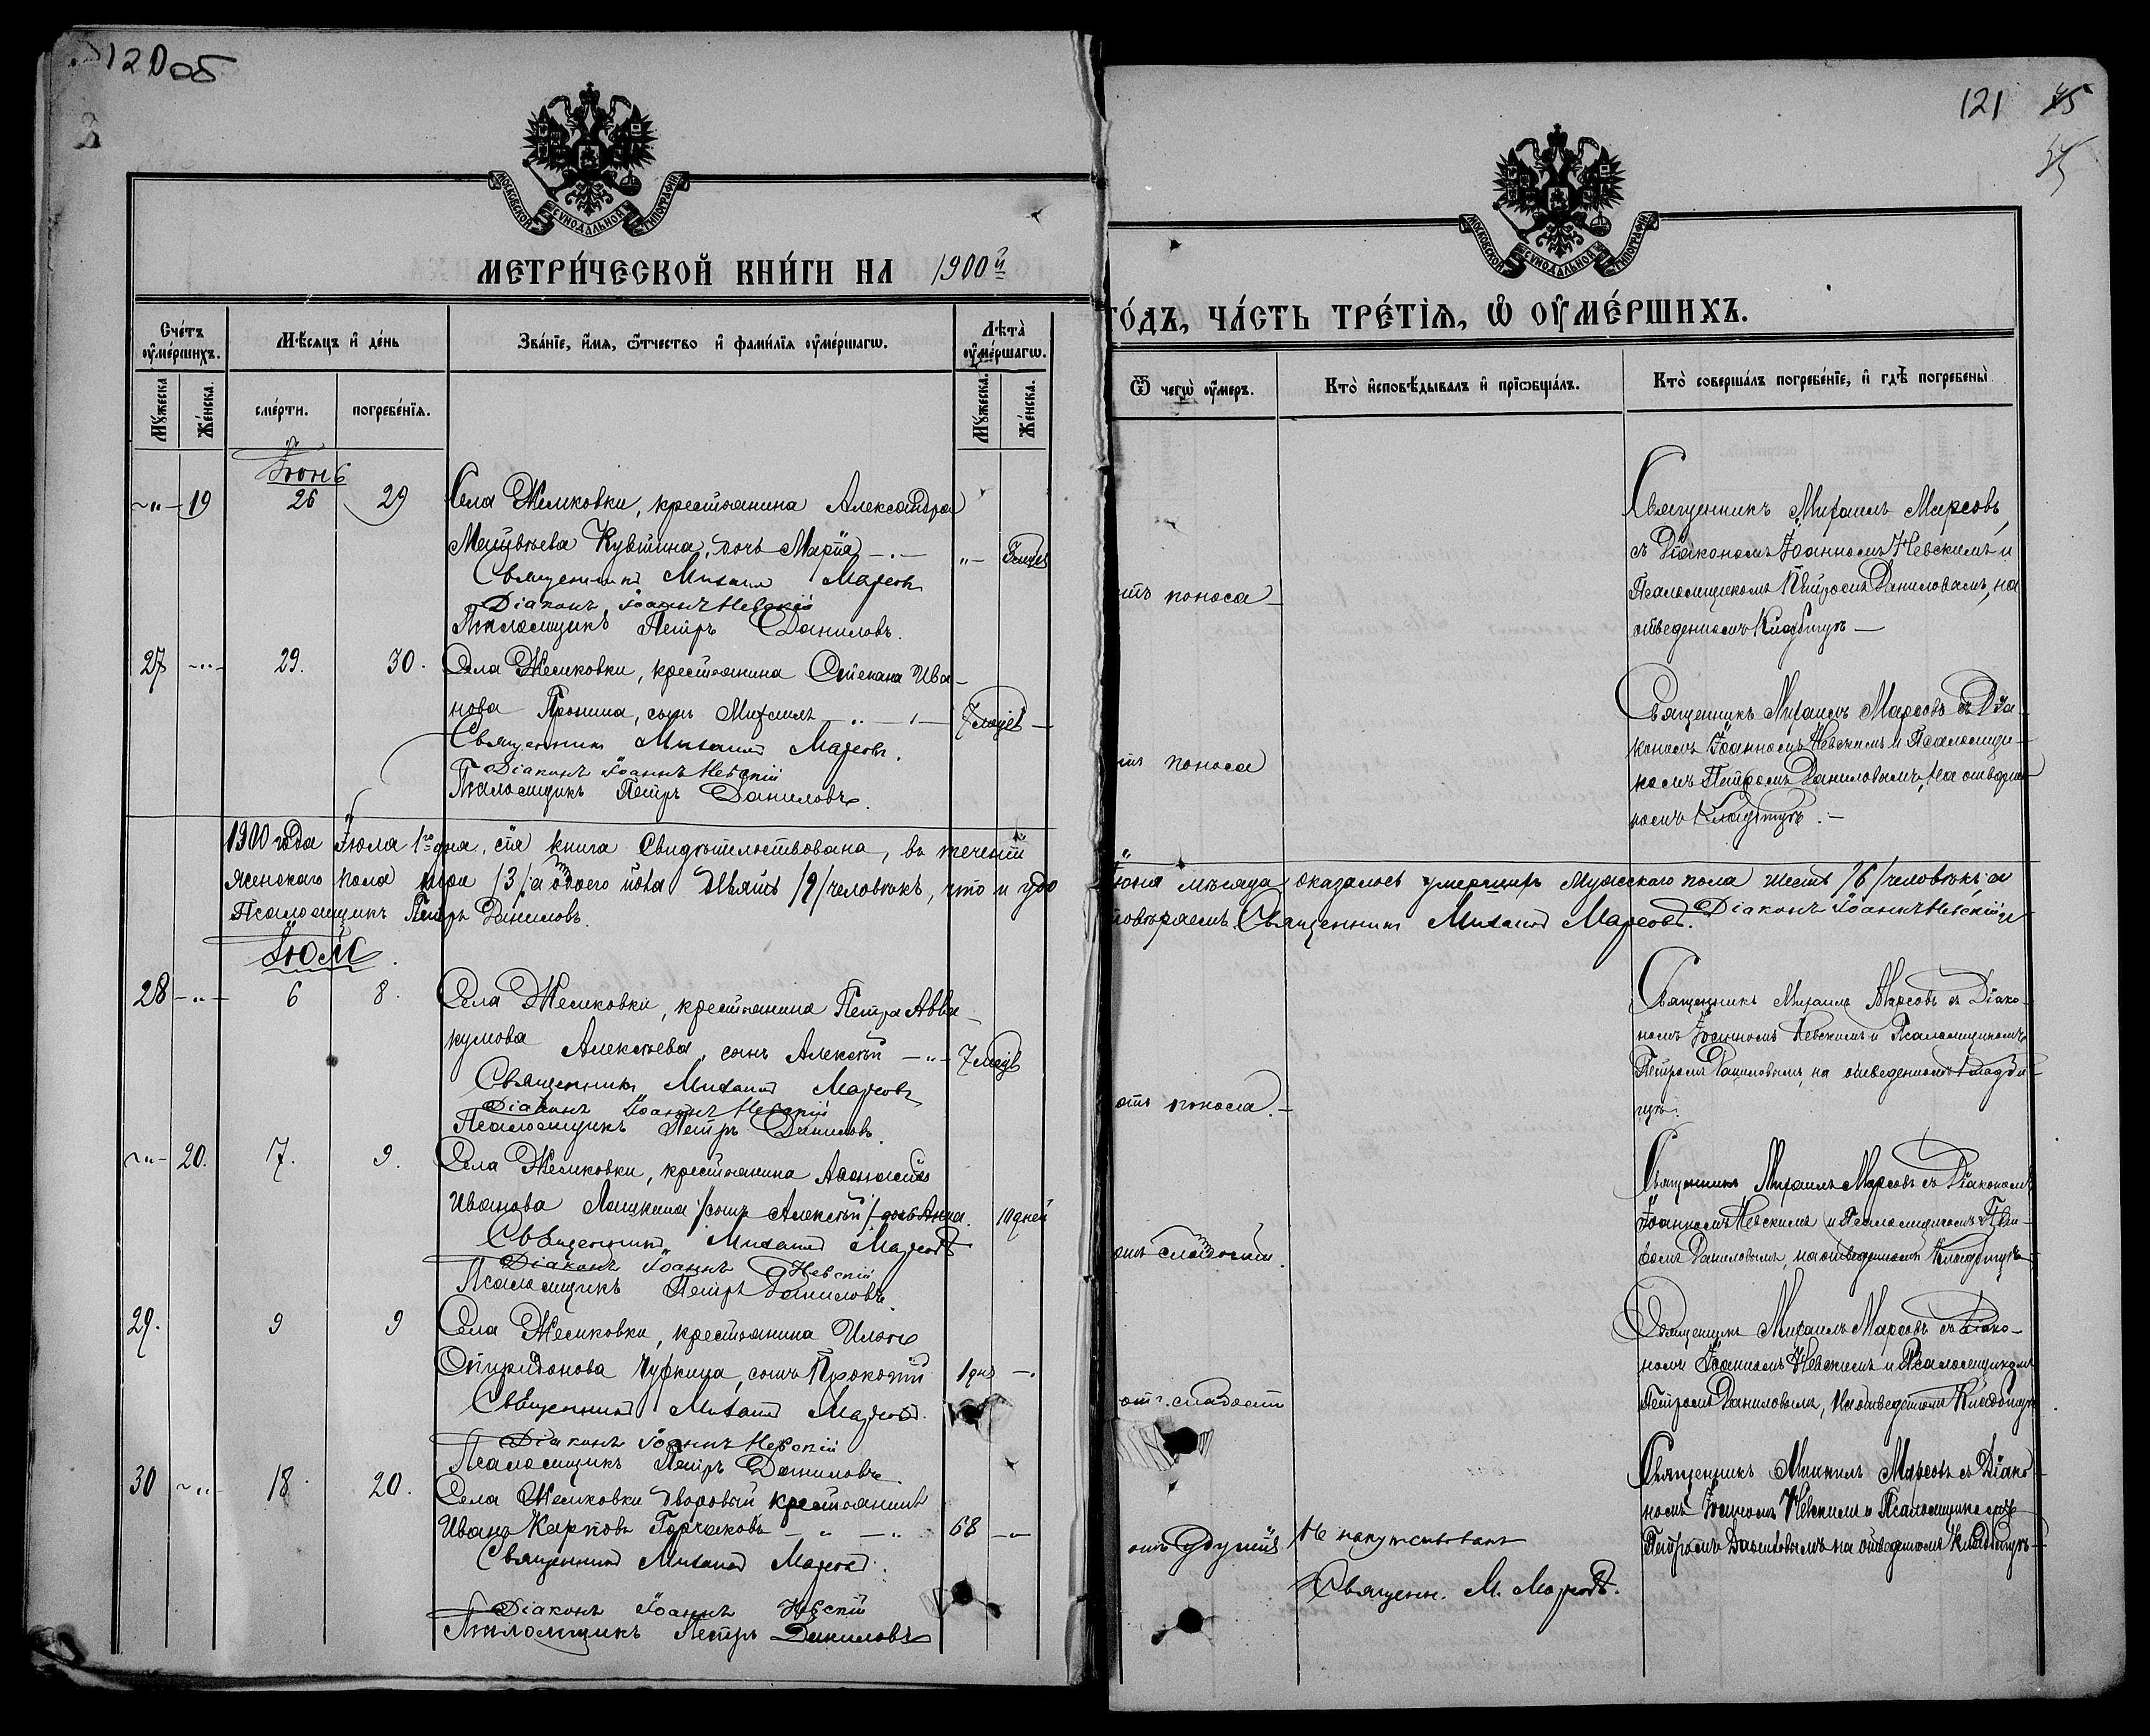 120об
121 45
МОСКОВСКОЙ СѴНОДАЛЬНОЙ ТИПОГРАФІИ
МОСКОВСКОЙ СѴНОДАЛЬНОЙ ТИПОГРАФІИ
МЕТРИ́ЧЕСКОЙ КНИ́ГИ НА 1900й
ГО́ДЪ, ЧА́СТЬ ТРЕ́ТІѦ, Ѡ҆ ОУ҆МЕ́РШИХЪ.
Сче́тъ оу҆ме́ршихъ.
Мѣ́сѧцъ и҆ де́нь
Зва́нїе, и҆́мѧ, ѻ҆́тчество и҆ фами́лїѧ оу҆ме́ршагѡ.
Лѣ́та оу҆ме́ршагѡ.
Мꙋ́жеска
Же́нска.
сме́рти.
погребе́нїѧ.
Мꙋ́жеска.
Же́нска.
Ѿ чегѡ̀ оу҆́меръ.
Кто̀ и҆сповѣ́дывалъ и҆ прїѡбща́лъ.
Кто̀ соверша́лъ погребе́нїе, и҆ гдѣ̀ погребены̀
Іюнь
19 26 29 Села Жемковки, крестьянина Александра
Матвѣева Кувшина, дочь Марія
Священникъ Михаилъ Марсовъ
Діаконъ Іоаннъ Невскій
Псаломщикъ Петръ Даниловъ.
отъ поноса
Священникъ Михаилъ Марсовъ,
съ Діакономъ Іоанномъ Невскимъ и
Псаломщикомъ Петромъ Даниловымъ, на
отведенномъ кладбищѣ
27 29. 30. Села Жемковки, крестьянина Степана Ива-
нова Пронина, сынъ Михаилъ 7 мѣсяцевъ
Священникъ Михаилъ Марсовъ.
Діаконъ Іоаннъ Невскій
Псаломщикъ Петръ Даниловъ.
отъ поноса
Священникъ Михаилъ Марсовъ съ Діа-
кономъ Іоанномъ Невскимъ и Псаломщи-
комъ Петромъ Даниловымъ, на отведен-
номъ кладбищѣ.
1900 года Іюля 1го дня, сія книга свидѣтельствована, въ теченіи
Іюня мѣсяца оказалось умершихъ мужескаго пола шесть /6/ человѣкъ, а
женскаго пола три /3/, а обоего пола девять /9/ человѣкъ, что и удо
стовѣряемъ. Священникъ Михаилъ Марсовъ. Діаконъ Іоаннъ Невскій и
Псаломщикъ Петръ Даниловъ.
Іюль.
28 6 8. Села Жемковки, крестьянина Петра Авва-
кумова Алексѣева, сынъ Алексѣй 7 мѣсяцевъ
Священникъ Михаилъ Марсовъ
Діаконъ Іоаннъ Невскій
Псаломщикъ Петръ Даниловъ.
отъ поноса.
Священникъ Михаилъ Марсовъ съ Діако-
номъ Іоанномъ Невскимъ и Псаломщикомъ
Петромъ Даниловымъ, на отведенномъ кладби-
щѣ.
20. 7. 9. Села Жемковки, крестьянина Аѳанасія
Иванова Лашкина /сынъ Алексѣй/ дочь Анна. 10 дней
Священникъ Михаилъ Марсовъ
Діаконъ Іоаннъ Невскій
Псаломщикъ Петръ Даниловъ.
отъ слабости.
Священникъ Михаилъ Марсовъ съ Діакономъ
Іоанномъ Невскимъ и Псаломщикомъ Пет-
ромъ Даниловымъ, на отведенномъ кладбищѣ
29. 9 9 Села Жемковки, крестьянина
Спиридонова сынъ Прокопій 1 дня
Священникъ Михаилъ Марсовъ.
Діаконъ Іоаннъ Невскій
Псаломщикъ Петръ Даниловъ.
отъ слабости
Священникъ Михаилъ Марсовъ съ Діако-
номъ Іоанномъ Невскимъ и Псаломщикомъ
Петромъ Даниловымъ, на отведенномъ кладбищѣ.
30 18. 20. Села Жемковки дворовый крестьянинъ
Иванъ Карповъ Горчаковъ 68
Священникъ Михаилъ Марсовъ.
Діаконъ Іоаннъ Невскій
Псаломщикъ Петръ Даниловъ
отъ удушія
Не напутствованъ
Священ. М. Марсовъ.
Священникъ Михаилъ Марсовъ съ Діако-
номъ Іоанномъ Невскимъ и Псаломщикомъ
Петромъ Даниловымъ на отведенномъ кладбищѣ